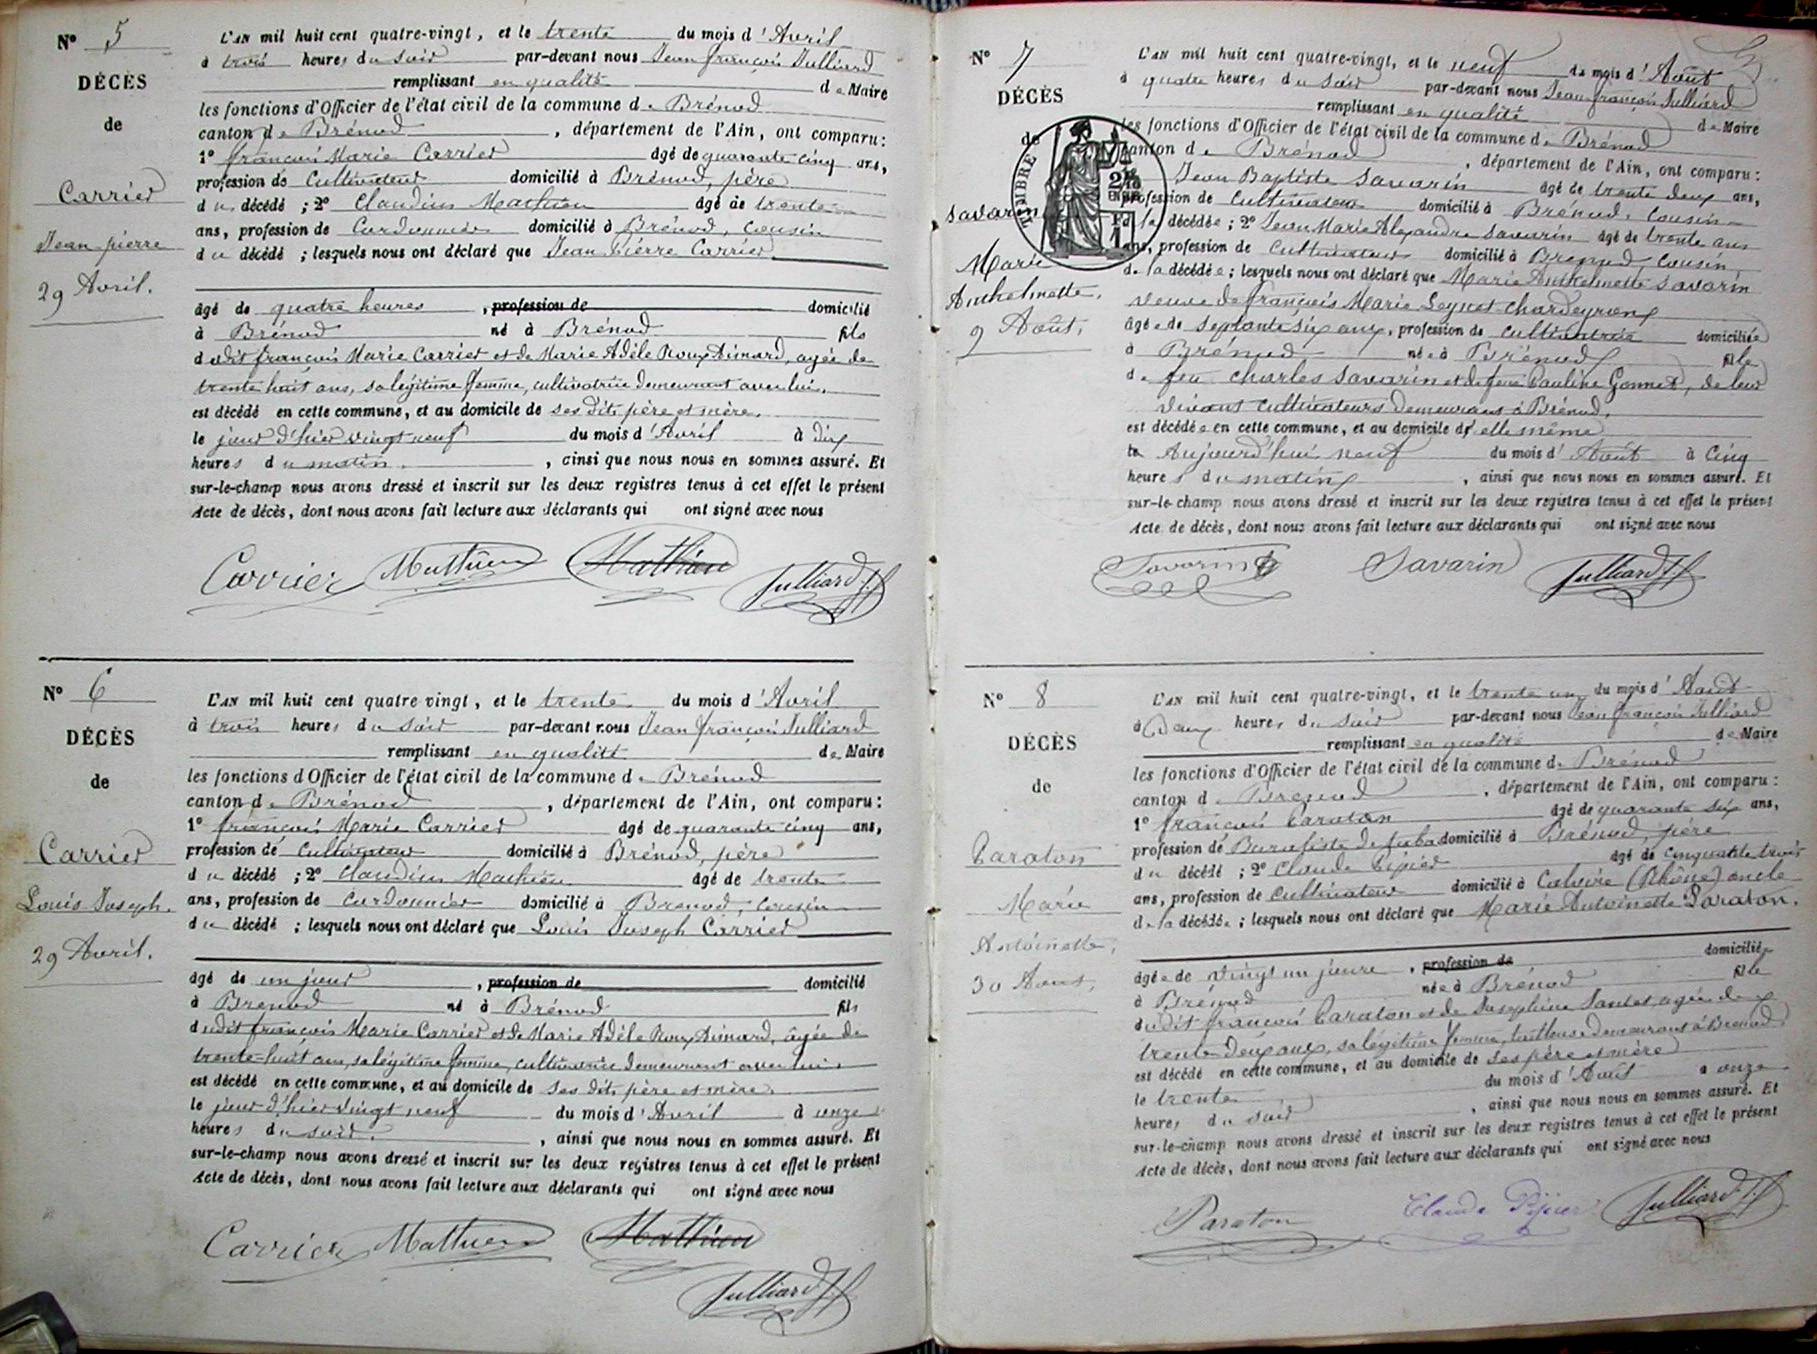 N° 5
DÉCÈS
de
Carrier
Jean-pierre
29 Avril.
L'AN mil huit cent quatre-vingt, et le trente du mois d'Avril
à trois heures du soir par-devant nous Jean françois Julliard
remplissant en qualité de Maire
les fonctions d'Officier de l'état civil de la commune de Brénod
canton de Brénod, département de l'Ain, ont comparu:
1° françois Marie Carrier âgé de quarante cinq ans,
profession de Cultivateur domicilié à Brénod, père
du décédé ; 2° Claudius Mathieu âgé de trente
ans, profession de Cordonnier domicilié à Brénod, cousin
du décédé ; lesquels nous ont déclaré que Jean Pierre Carrier
âgé de quatre heures, profession de domicilié
à Brénod né à Brénod fils
dudit françois Marie Carrier et de Marie Adèle Roux Aimard, agée de
trente huit ans, sa légitime femme, cultivatrice demeurant avec lui.
est décédé en cette commune, et au domicile de ses dits père et mère.
le jour d'hier vingt neuf du mois d'Avril à dix
heures du matin, ainsi que nous nous en sommes assuré. Et
sur-le-champ nous avons dressé et inscrit sur les deux registres tenus à cet effet le présent
Acte de décès, dont nous avons fait lecture aux déclarants qui ont signé avec nous
Carrier Mathieu Mathieu Julliard J.f
N° 6
DÉCÈS
de
Carrier
Louis Joseph.
29 Avril.
L'AN mil huit cent quatre-vingt, et le trente du mois d'Avril
à trois heures du soir par-devant nous Jean françois Julliard
remplissant en qualité de Maire
les fonctions d'Officier de l'état civil de la commune de Brénod
canton de Brénod, département de l'Ain, ont comparu:
1° françois Marie Carrier âgé de quarante cinq ans,
profession de Cultivateur domicilié à Brénod, père
du décédé ; 2° Claudius Mathieu âgé de trente
ans, profession de Cordonnier domicilié à Brénod, cousin
du décédé ; lesquels nous ont déclaré que Louis Joseph Carrier
âgé de un jour, profession de domicilié
à Brénod né à Brénod fils
dudit françois Marie Carrier et de Marie Adèle Roux Aimard, âgée de
trente-huit ans, sa légitime femme, cultivatrice demeurant avec lui.
est décédé en cette commune, et au domicile de ses dits père et mère.
le jour d'hier vingt neuf du mois d'Avril à onze
heures du soir, ainsi que nous nous en sommes assuré. Et
sur-le-champ nous avons dressé et inscrit sur les deux registres tenus à cet effet le présent
Acte de décès, dont nous avons fait lecture aux déclarants qui ont signé avec nous
Carrier Mathieu Mathieu
Julliard J.f
N° 7
DÉCÈS
de
Savarin
Marie
Anthelmette.
9 Août.
TIMBRE
L'AN mil huit cent quatre-vingt, et le neuf du mois d'Août
à quatre heures du soir par-devant nous Jean françois Julliard
remplissant en qualité de Maire
les fonctions d'Officier de l'état civil de la commune de Brénod
canton de Brénod, département de l'Ain, ont comparu:
Jean Baptiste Savarin âgé de trente deux ans,
profession de Cultivateur domicilié à Brénod, Cousin
de la décédée ; 2° Jean Marie Alexandre Savarin âgé de trente ans
ans, profession de Cultivateur domicilié à Brénod, Cousin
de la décédée ; lesquels nous ont déclaré que Marie Anthelmette Savarin
veuve de françois Marie Seynet Chardeyron
âgée de septante six ans, profession de cultivatrice domiciliée
à Brénod née à Brénod fille
de feu Charles Savarin et de feue Pauline Gonnet, de leur
vivant cultivateurs demeurans à Brénod.
est décédée en cette commune, et au domicile d'elle même
le Aujourd'hui neuf du mois d'Août à Cinq
heures du matin, ainsi que nous nous en sommes assuré. Et
sur-le-champ nous avons dressé et inscrit sur les deux registres tenus à cet effet le présent
Acte de décès, dont nous avons fait lecture aux déclarants qui ont signé avec nous
Savarin Savarin Julliard J.f
N° 8
DÉCÈS
de
Paraton
Marie
Antoinette,
30 Aout,
L'AN mil huit cent quatre-vingt, et le trente un du mois d'Aout
à Deux heures du soir par-devant nous Jean françois Julliard
remplissant en qualité de Maire
les fonctions d'Officier de l'état civil de la commune de Brénod
canton de Brénod, département de l'Ain, ont comparu:
1° françois Paraton âgé de quarante six ans,
profession de Buraliste de tabac domicilié à Brénod, père
du décédé ; 2° Claude Pipier âgé de cinquante trois
ans, profession de Cultivateur domicilié à Caluire (Rhône) oncle
de la décédée ; lesquels nous ont déclaré que Marie Antoinette Paraton.
âgée de vingt un jours, profession de domiciliée
à Brénod née à Brénod fille
dudit françois Paraton et de Joséphine agée de
trente Deux ans, sa légitime femme, tailleuse Demeurans à Brénod
est décédé en cette commune, et au domicile de ses père et mère
le trente du mois d'Août à onze
heures du soir, ainsi que nous nous en sommes assuré. Et
sur-le-champ nous avons dressé et inscrit sur les deux registres tenus à cet effet le présent
Acte de décès, dont nous avons fait lecture aux déclarants qui ont signé avec nous
Paraton Claude Pipier Julliard J.f